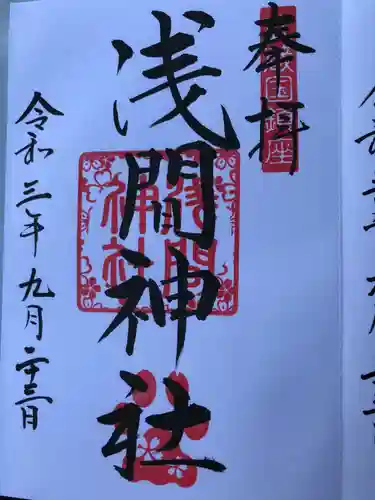 奉拝
浅間神社
令和三年九月二十三日
浅間
神社
国鎮座